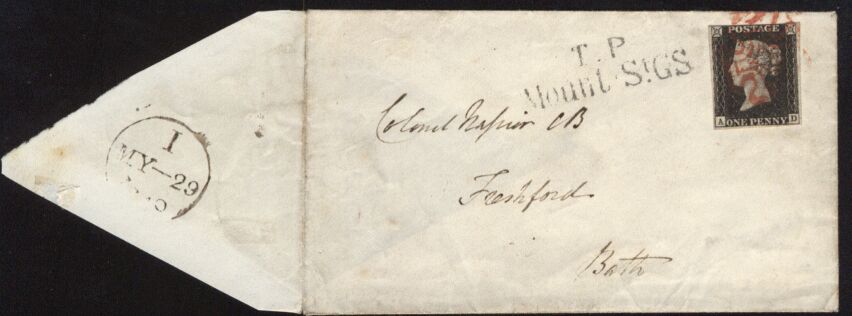 I
MY-29
POSTAGE
T.P
Mount St GS
A ONE PENNY D
Colonel Napier CB
Freshford
Bath